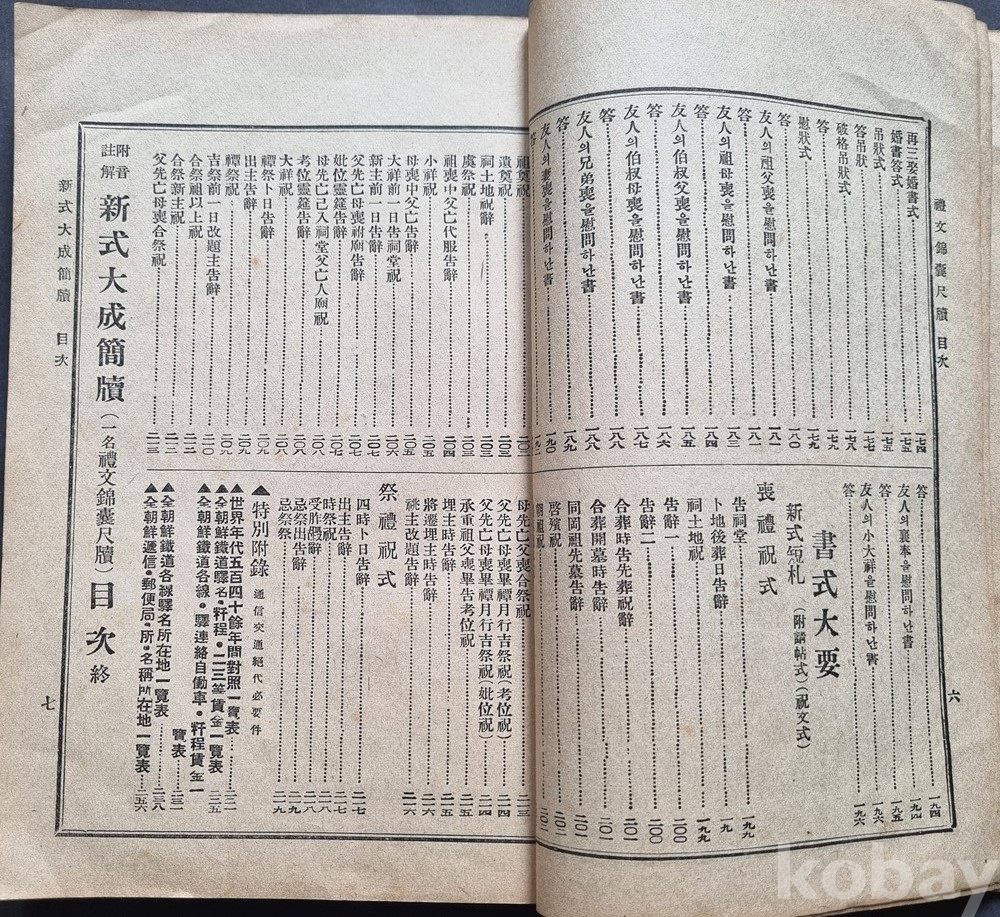 禮文錦囊尺牘 目次
再三娶婚書式 一七四
婚書答式 一七五
吊狀式 一七五
答吊狀 一七七
破格吊狀式 一七八
答 一七九
慰狀式 一八〇
答 一八一
友人의祖父喪을慰問하난書 一八一
答 一八二
友人의祖母喪을慰問하난書 一八三
答 一八四
友人의伯叔父喪을慰問하난書 一八五
答 一八六
友人의伯叔母喪을慰問하난書 一八七
答 一八八
友人의兄弟喪을慰問하난書 一八八
答 一八九
友人의妻喪을慰問하난書 一九〇
答
答 一九四
友人의襄奉을慰問하난書 一九四
答 一九五
友人의小大祥을慰問하난書 一九六
答 一九六
書式大要
新式短札 (附請帖式)(祝文式)
喪禮祝式
告祠堂 一九九
卜地後葬日告辭 一九
祠土地祝 一九九
告辭一 二〇〇
告辭二 二〇〇
合葬時告先葬祝辭 二〇一
合葬開墓時告辭 二〇一
同岡祖先墓告辭 二〇一
啓殯祝 二〇二
朝祖祝 二〇二
六
祖奠祝 二〇二
遣奠祝 二〇三
祠土地祝辭 二〇三
虞祭祝 二〇三
祖喪中父亡代服告辭 二〇四
小祥祝 二〇五
母喪中父亡告辭 二〇五
大祥前一日告祠堂祝 二〇六
新主前一日告辭 二〇七
父先亡母喪祔廟告辭 二〇七
妣位靈筵告辭 二〇七
母先亡已入祠堂父亡入廟祝 二〇八
考位靈筵告辭 二〇八
大祥祝 二〇八
禫祭卜日告辭 二〇九
出主告辭 二〇九
禫祭祝 二〇九
吉祭前一日改題主告辭 二一〇
合祭祖以上祝 二一一
合祭新主祝 二一二
父先亡母喪合祭祝 二一三
母先亡父喪合祭祝 二一三
父先亡母喪畢禫月行吉祭祝(考位祝) 二一四
父先亡母喪畢禫月行吉祭祝(妣位祝) 二一四
承重祖父喪畢告考位祝 二一五
埋主時告辭 二一五
將遷埋主時告辭 二一六
祧主改題告辭 二一六
祭禮祝式
四時卜日告辭 二一七
出主告辭 二一七
時祭祝 二一八
受胙嘏辭 二一八
忌祭出主告辭 二一九
忌祭祭 二一九
▲特別附錄 通信交通絕代必要件
▲世界年代五百四十餘年間對照一覽表 二二一
▲全朝鮮鐵道驛名•粁程•二三等賃金一覽表 二二五
▲全朝鮮鐵道各線•驛連絡自働車•粁程賃金一覽表 二三一
▲全朝鮮鐵道各線驛名所在地一覽表 二三八
▲全朝鮮遞信•郵便局•所•名稱所在地一覽表 二五六
附音
註解
新式大成簡牘(一名禮文錦囊尺牘)目次 終
新式大成簡牘 目次
七
kobay